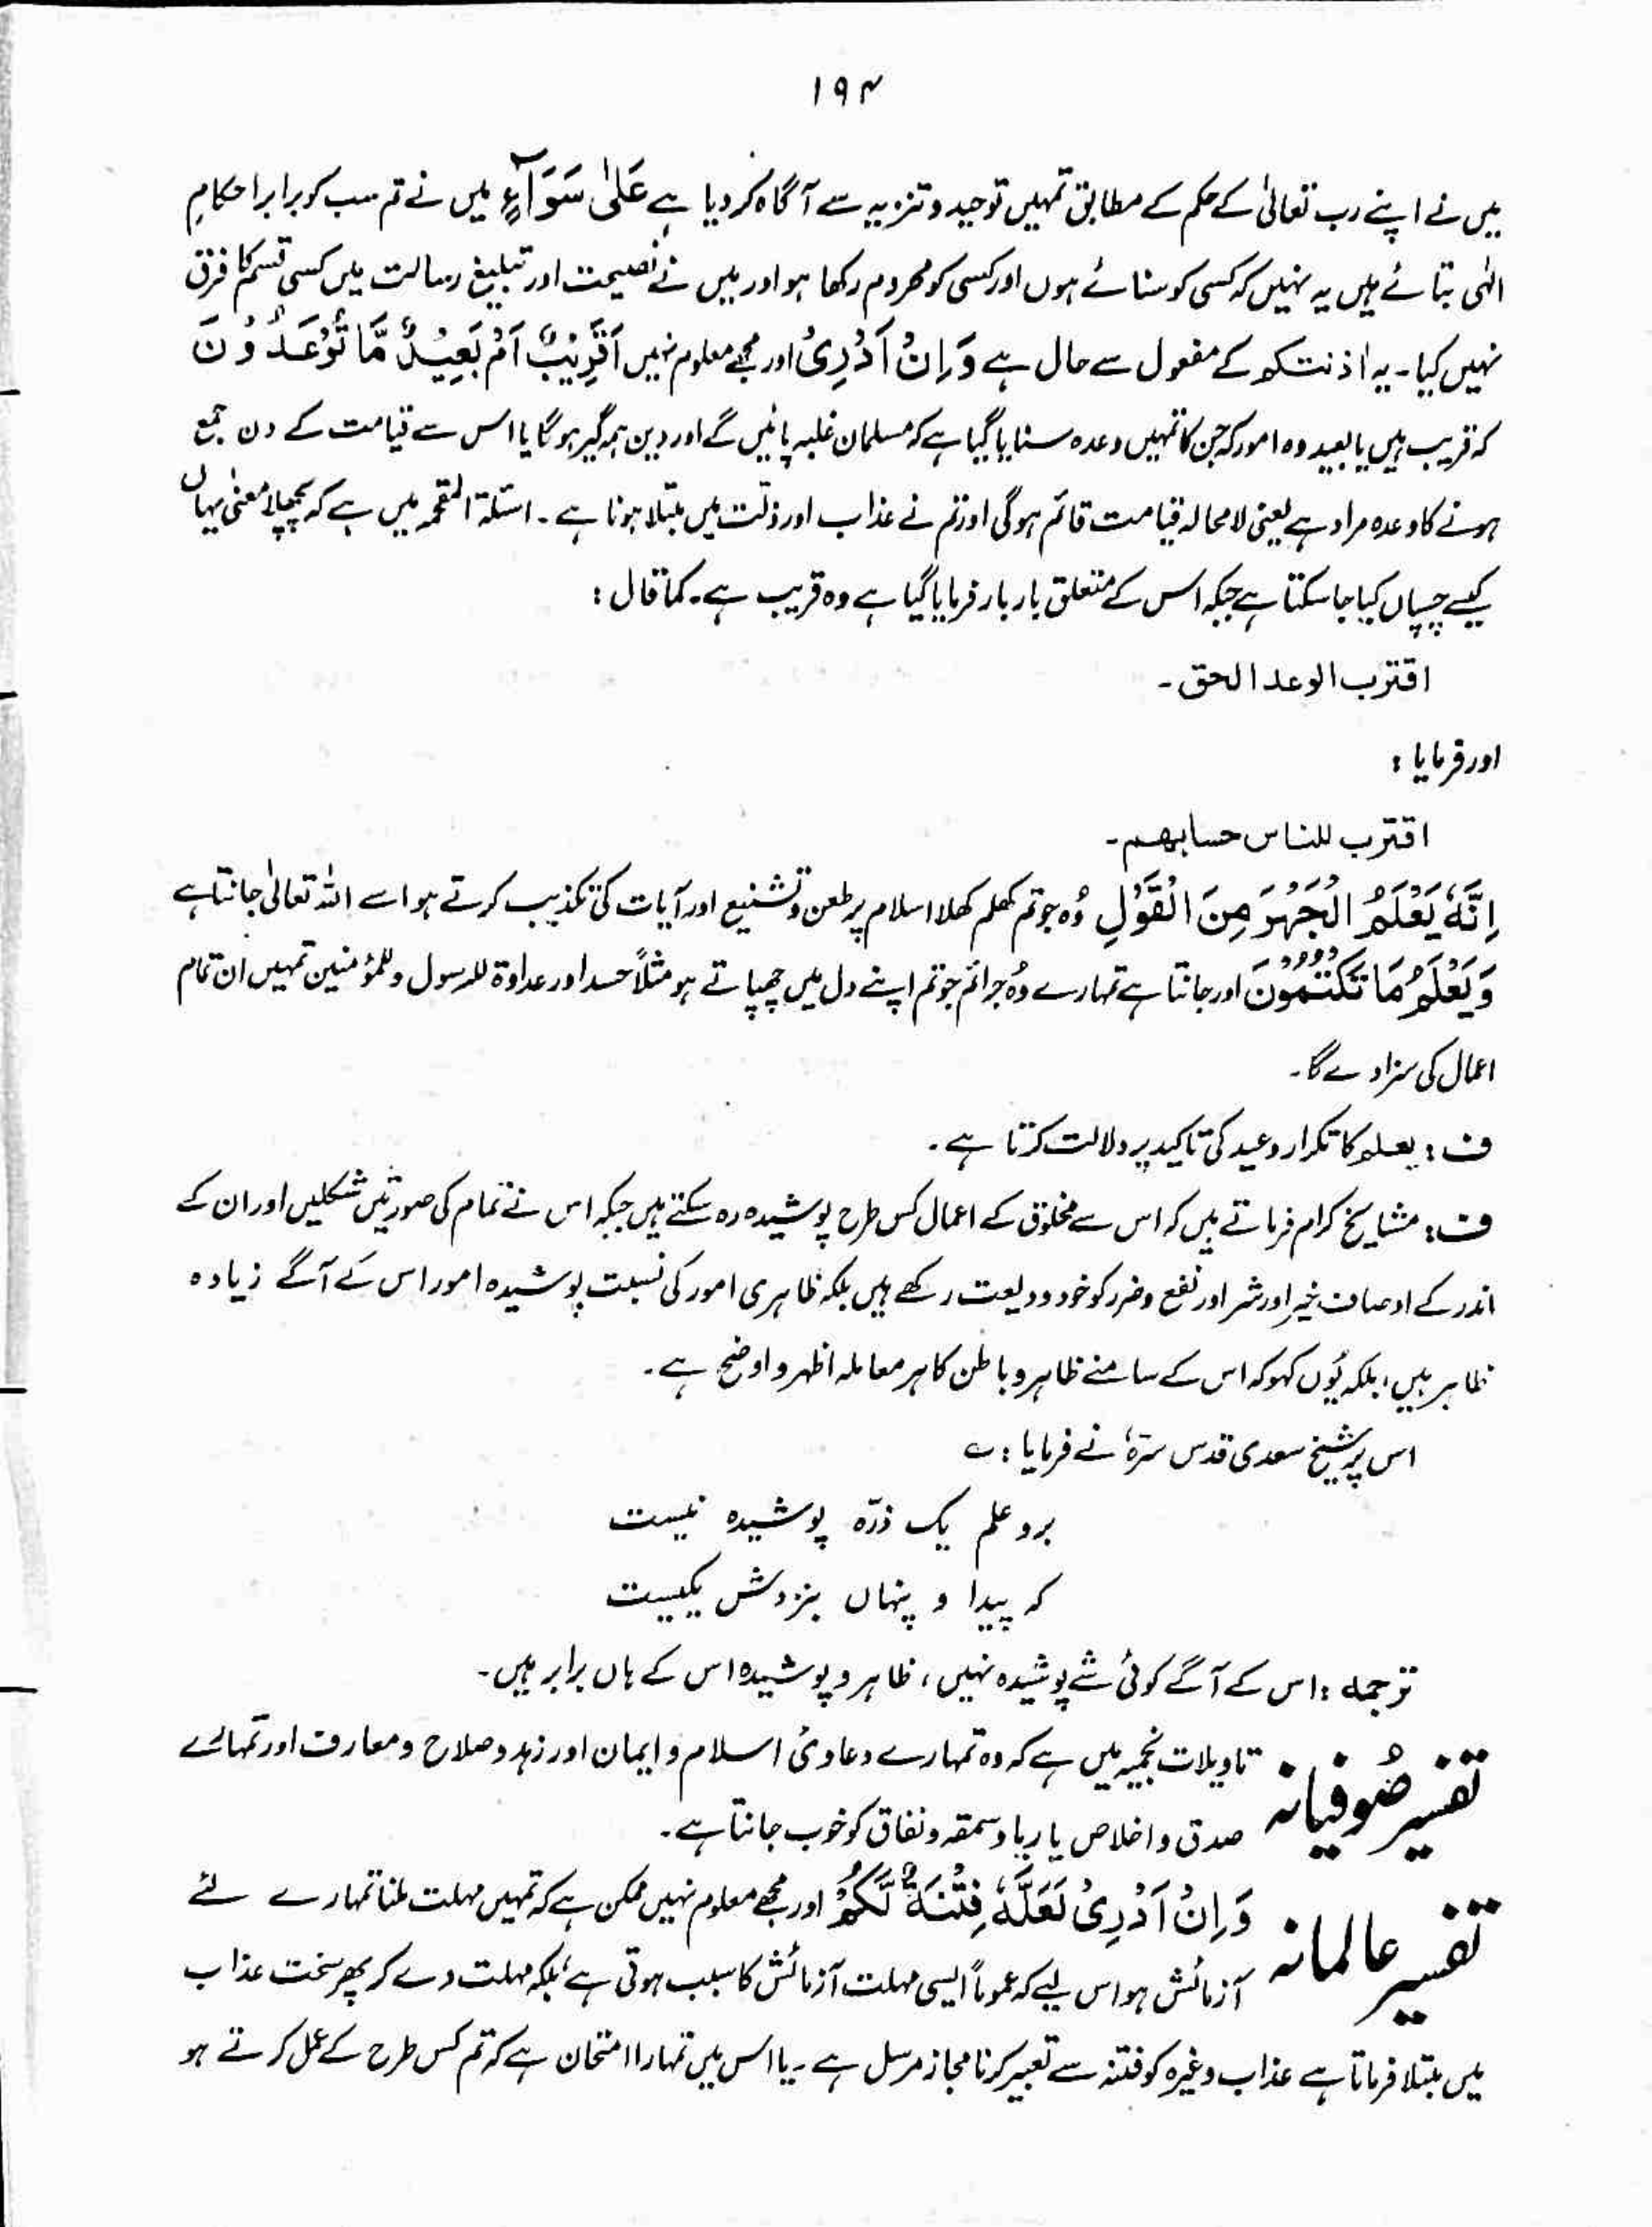 ۱۹۴
میں نے اپنے رب تعالیٰ کے حکم کے مطابق تمہیں توحید و تنزیہ سے آگاہ کر دیا ہے عَلٰی سَوَآءٍ میں نے تم سب کو برابر احکامِ
الٰہی بتائے ہیں یہ نہیں کہ کسی کو سنائے ہوں اور کسی کو محروم رکھا ہو اور میں نے نصیحت اور تبلیغ رسالت میں کسی قسم کا فرق
نہیں کیا۔ یہ اٰذنتکم کے مفعول سے حال ہے وَ اِنْ اَدْرِیْ اور مجھے معلوم نہیں اَقَرِیْبٌ اَمْ بَعِیْدٌ مَّا تُوْعَدُوْنَ
کہ قریب ہیں یا بعید وہ امور کہ جن کا تمہیں وعدہ سنایا گیا ہے کہ مسلمان غلبہ پائیں گے اور دین ہمہ گیر ہو گا یا اس سے قیامت کے دن جمع
ہونے کا وعدہ مراد ہے یعنی لامحالہ قیامت قائم ہو گی اور تم نے عذاب اور ذلت میں مبتلا ہونا ہے۔ اسئلۃ المقحمہ میں ہے کہ پچھلا معنیٰ یہاں
کیسے چسپاں کیا جا سکتا ہے جبکہ اس کے متعلق بار بار فرمایا گیا ہے وہ قریب ہے۔ کما قال :
اقترب الوعد الحق ۔
اور فرمایا :
اقترب للناس حسابھم ۔
اِنَّہٗ یَعْلَمُ الْجَہْرَ مِنَ الْقَوْلِ وُہ جو تم کھلم کھلا اسلام پر طعن و تشنیع اور آیات کی تکذیب کرتے ہو اسے اللہ تعالیٰ جانتا ہے
وَ یَعْلَمُ مَا تَکْتُمُوْنَ اور جانتا ہے تمہارے وُہ جرائم جو تم اپنے دل میں چھپاتے ہو مثلاً حسد اور عداوۃ للرسول و للمؤمنین تمہیں ان تمام
اعمال کی سزا دے گا۔
ف : یعلم کا تکرار وعید کی تاکید پر دلالت کرتا ہے ۔
ف : مشایخ کرام فرماتے ہیں کہ اس سے مخلوق کے اعمال کس طرح پوشیدہ رہ سکتے ہیں جبکہ اس نے تمام کی صورتیں شکلیں اور ان کے
اندر کے اوصاف خیر اور شر اور نفع و ضرر کو خود ودیعت رکھے ہیں بلکہ ظاہری امور کی نسبت پوشیدہ امور اس کے آگے زیادہ
ظاہر ہیں، بلکہ یُوں کہو کہ اس کے سامنے ظاہر و باطن کا ہر معاملہ اظہر و اوضح ہے ۔
اس پر شیخ سعدی قدس سرّہٗ نے فرمایا : ؎
برو علم یک ذرّہ پوشیدہ نیست
کہ پیدا و پنہاں بنزدش یکیست
ترجمہ : اس کے آگے کوئی شے پوشیدہ نہیں ، ظاہر و پوشیدہ اس کے ہاں برابر ہیں ۔
تفسیر صُوفیانہ تاویلات نجمیہ میں ہے کہ وہ تمہارے دعاویٔ اسلام و ایمان اور زہد و صلاح و معارف اور تمہارے
صدق و اخلاص یا ریا و سمعہ و نفاق کو خوب جانتا ہے ۔
تفسیر عالمانہ وَ اِنْ اَدْرِیْ لَعَلَّہٗ فِتْنَۃٌ لَّکُمْ اور مجھے معلوم نہیں ممکن ہے کہ تمہیں مہلت ملنا تمہارے لئے
آزمائش ہو اس لیے کہ عموماً ایسی مہلت آزمائش کا سبب ہوتی ہے، بلکہ مہلت دے کر پھر سخت عذاب
میں مبتلا فرماتا ہے عذاب وغیرہ کو فتنہ سے تعبیر کرنا مجاز مرسل ہے ۔ یا اس میں تمہارا امتحان ہے کہ تم کس طرح کے عمل کرتے ہو